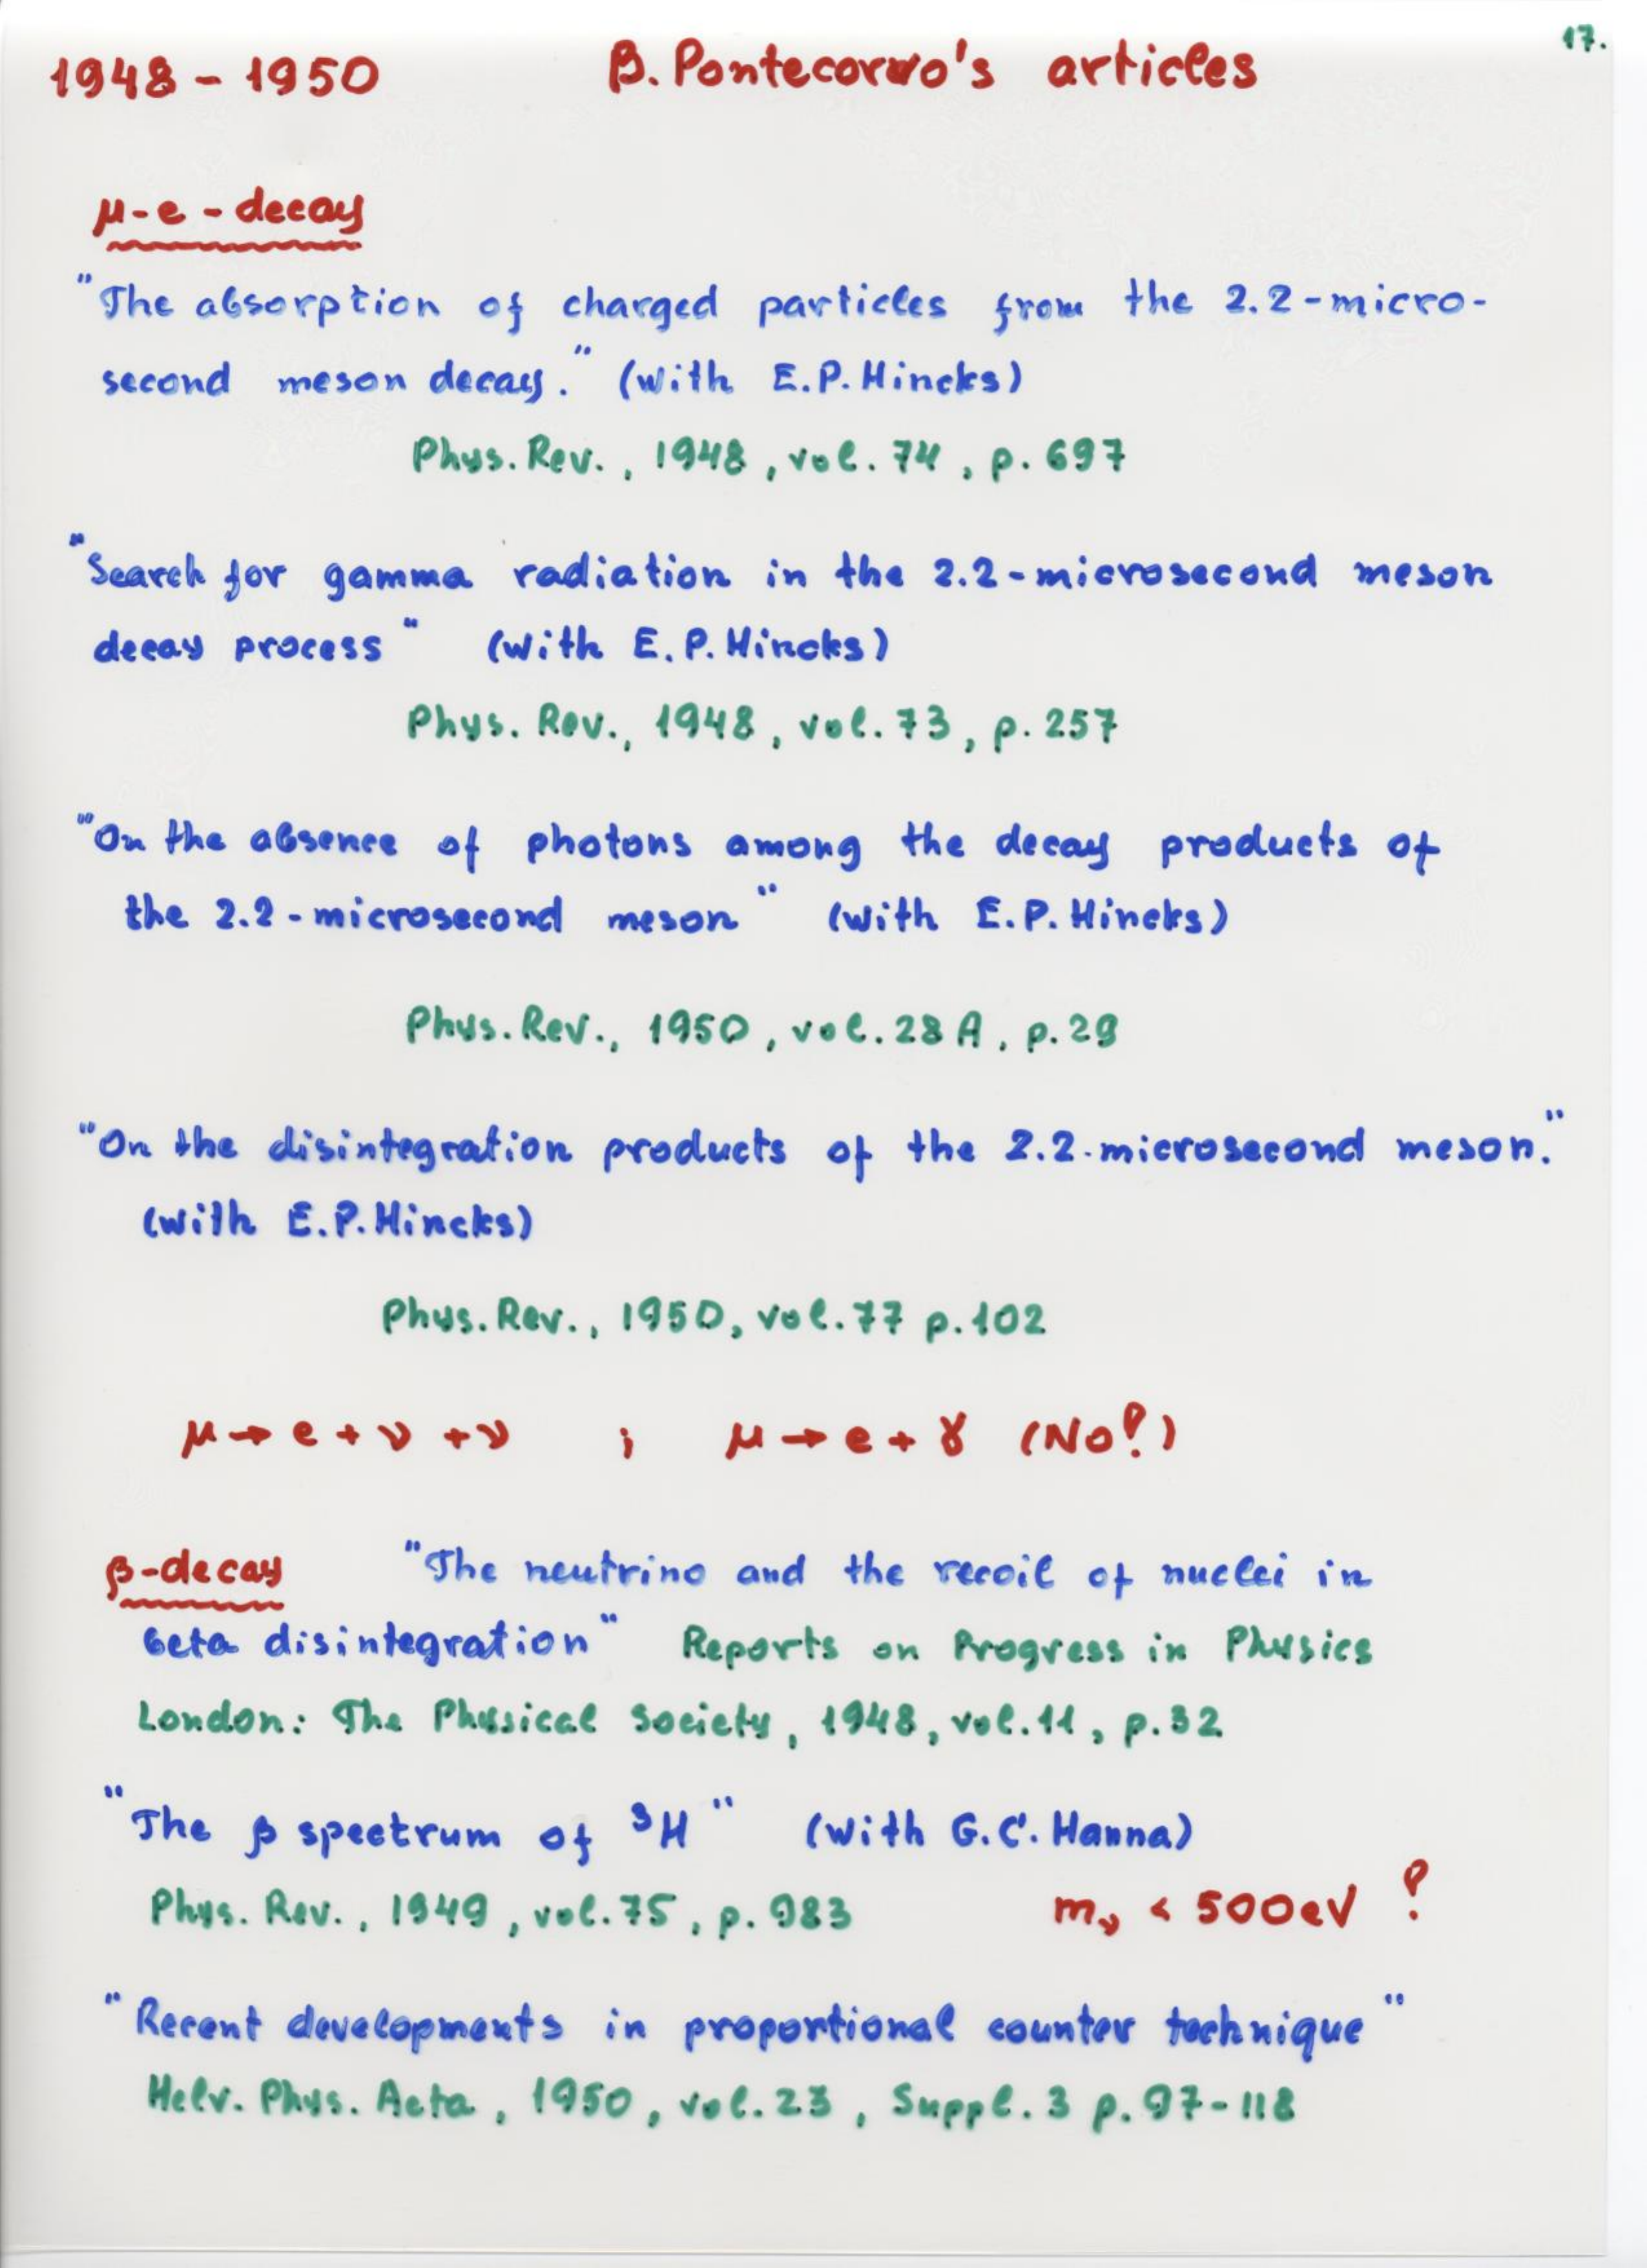 17.
1948 - 1950 B. Pontecorvo's articles
μ-e-decay
"The absorption of charged particles from the 2.2-micro-
second meson decay." (with E.P. Hincks)
Phys. Rev., 1948, vol. 74, p. 697
"Search for gamma radiation in the 2.2-microsecond meson
decay process" (with E.P. Hincks)
Phys. Rev., 1948, vol. 73, p. 257
"On the absence of photons among the decay products of
the 2.2-microsecond meson" (with E.P. Hincks)
Phys. Rev., 1950, vol. 28 A, p. 29
"On the disintegration products of the 2.2-microsecond meson."
(with E.P. Hincks)
Phys. Rev., 1950, vol. 77 p. 102
μ → e + ν + ν ; μ → e + γ (No?)
β-decay "The neutrino and the recoil of nuclei in
beta disintegration" Reports on Progress in Physics
London: The Physical Society, 1948, vol. 11, p. 32
"The β spectrum of ³H" (with G.C. Hanna)
Phys. Rev., 1949, vol. 75, p. 983 mν < 500 eV ?
"Recent developments in proportional counter technique"
Helv. Phys. Acta, 1950, vol. 23, Suppl. 3 p. 97-118